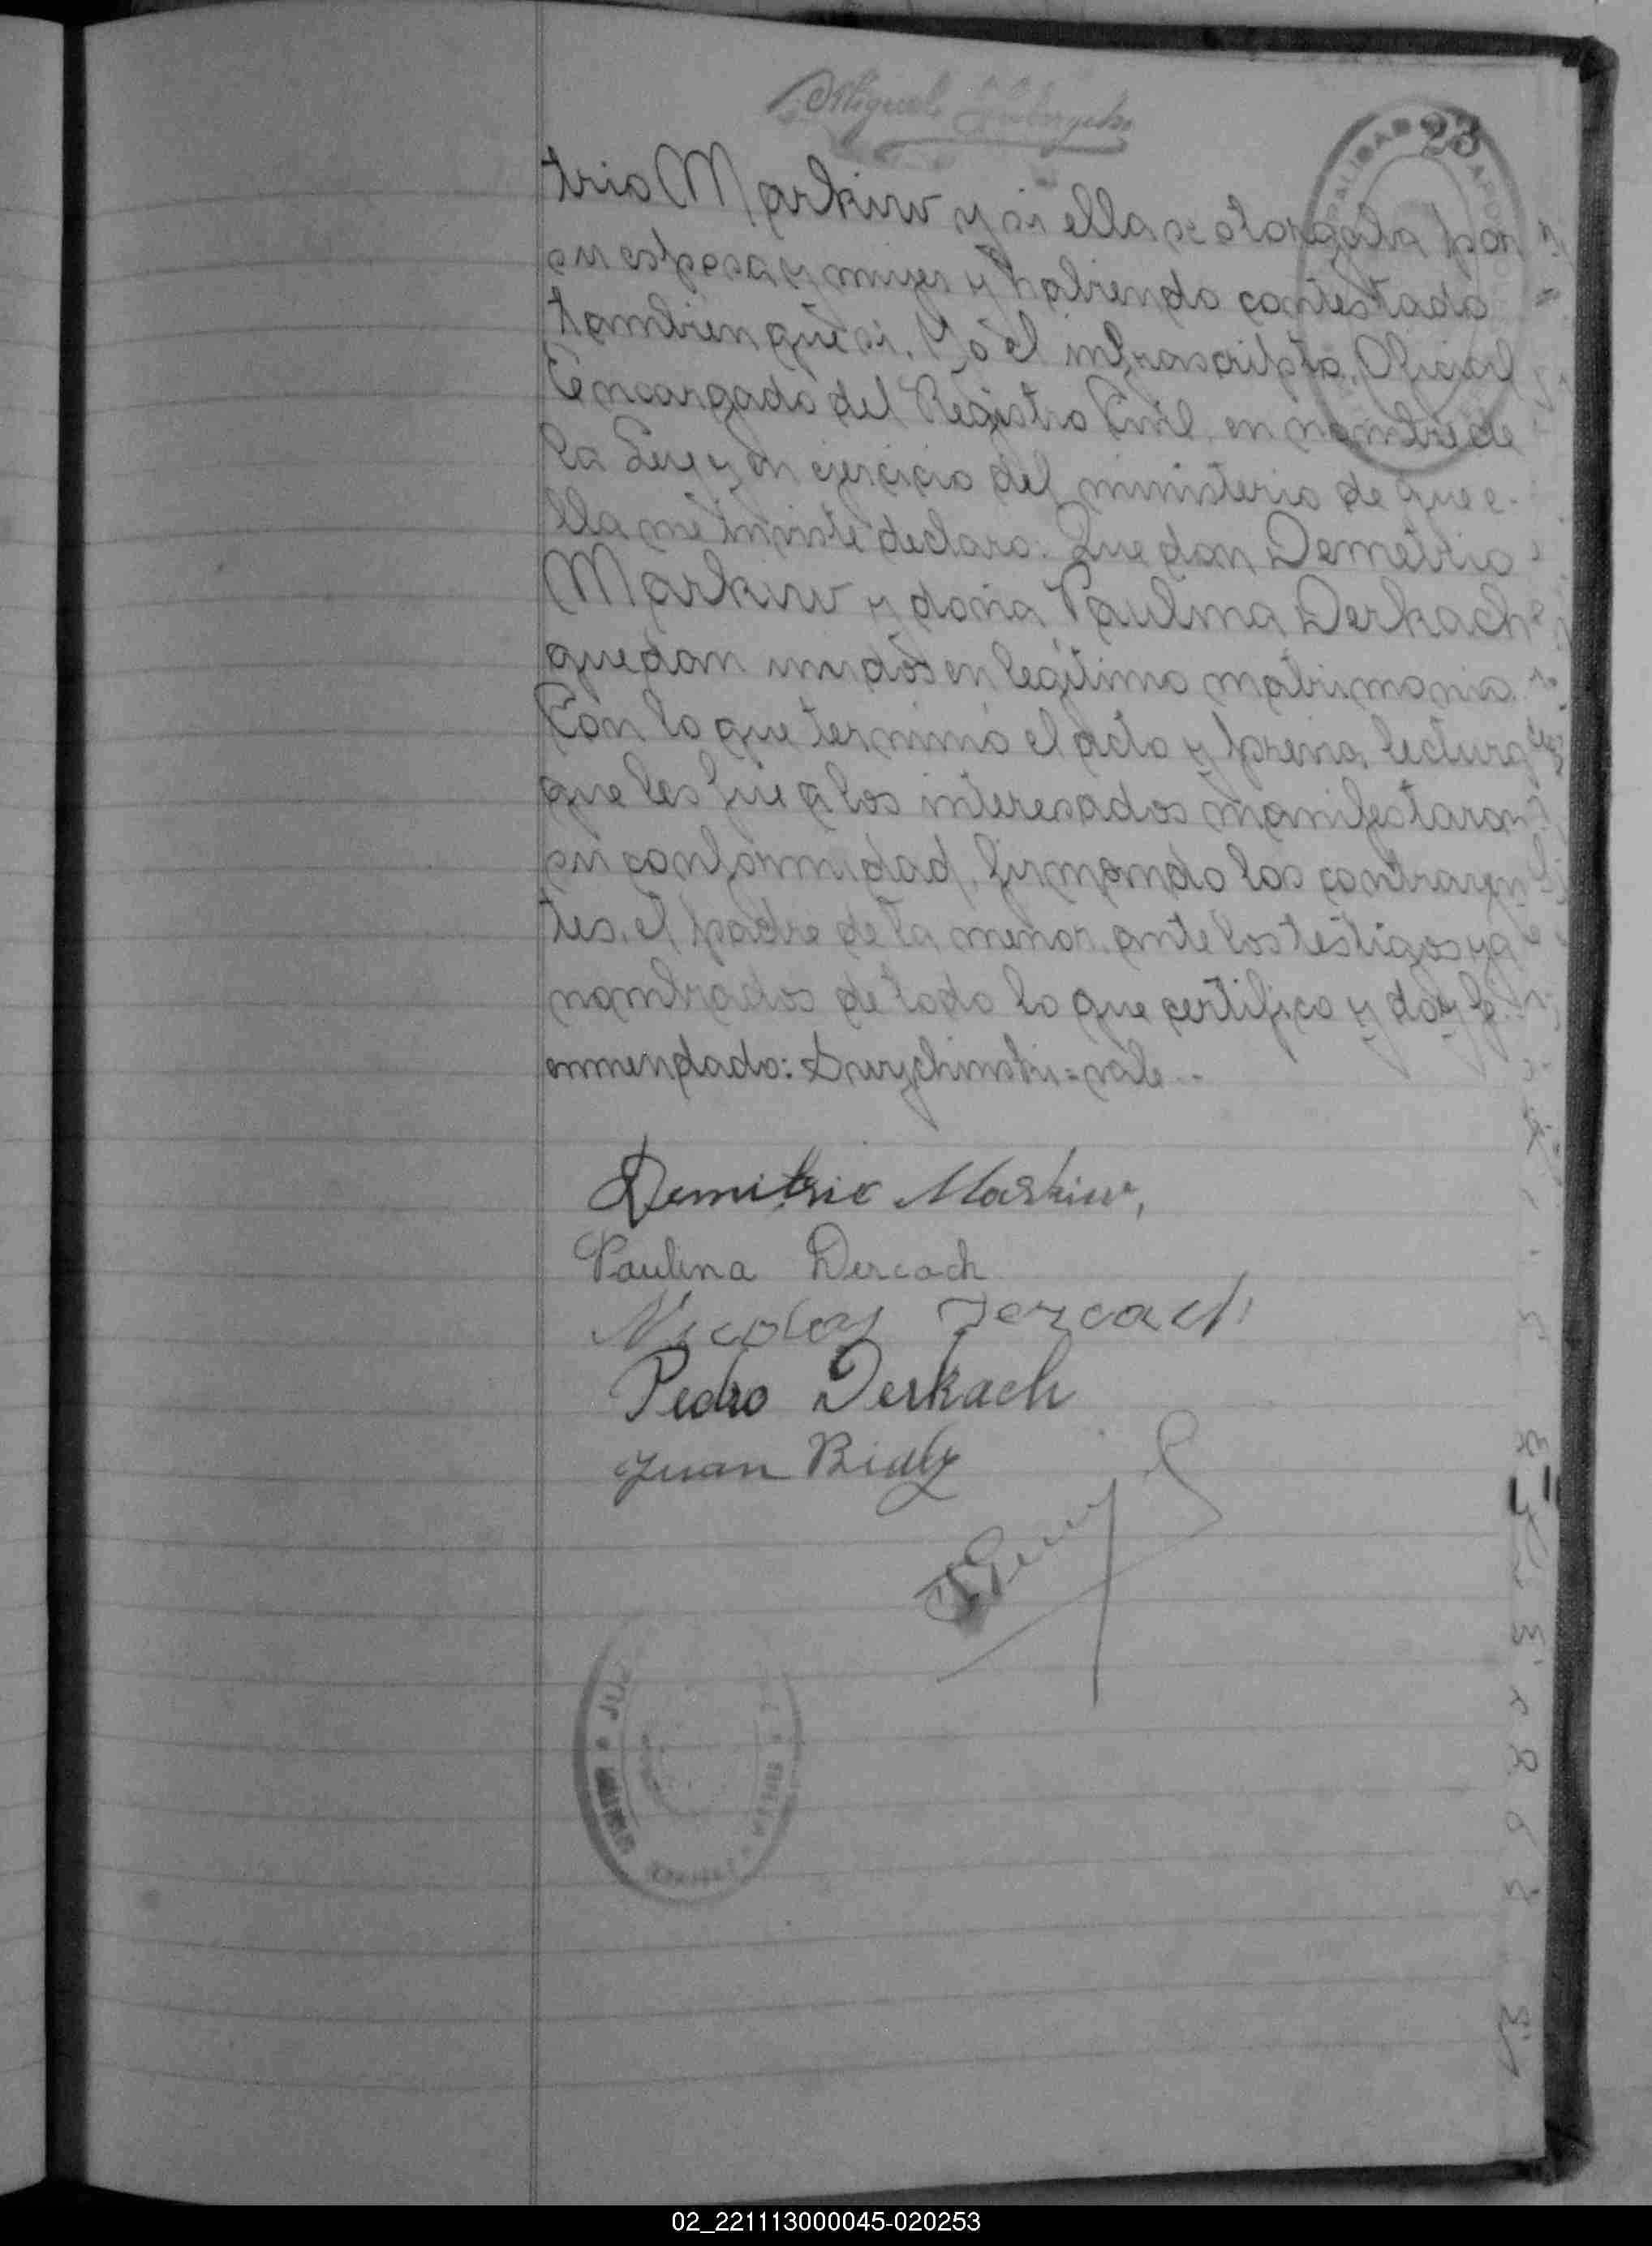 23
trio Markiw y si ella se otorgaba por
su esposa y mujer y habiendo contestado
tambien que si. Yo el infrascripto, Oficial
Encargado del Registro Civil, en nombre de
la Ley y en ejercicio del ministerio de que e-
lla me inviste declaro: Que don Demetrio
Markiw y doña Paulina Derkach
quedan unidos en legitimo matrimonio.
Con lo que terminó el acto y previa lectura
que les fue a los interesados manifestaron
su conformidad, firmando los contrayen
tes, el padre de la menor, ante los testigos ya
nombrados de todo lo que certifico y doy fé.
enmendado: = vale.-
Demitrio Markiw,
Paulina Dercach
Nicolay Dercach
Pedro Derkach
Juan Bialy
02_221113000045-020253